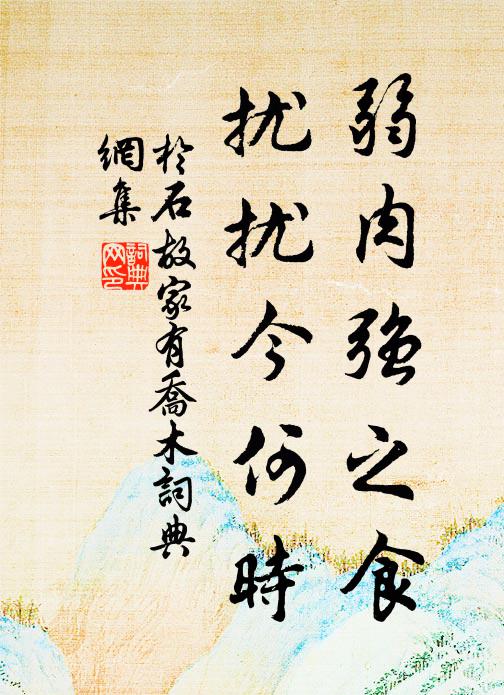 弱肉強之食
扰扰今何時
於石故家有喬木詞典
網集
詞典网印